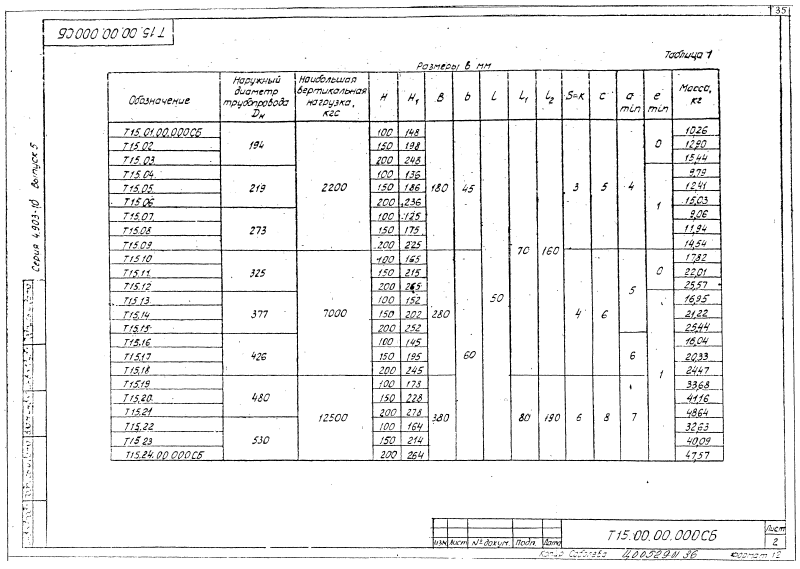 35
Т15.00.00.000СБ
Таблица 1
Размеры в мм
Обозначение | Наружный диаметр трубопровода Dн | Наибольшая вертикальная нагрузка, кгс | H | H1 | B | b | L | L1 | L2 | S=K | c | a min | e min | Масса, кг
Т15.01.00.000СБ | 194 | 2200 | 100 | 148 | 180 | 45 | 50 | 70 | 160 | 3 | 5 | 4 | 0 | 10,26
Т15.02 | 150 | 198 | 12,90
Т15.03 | 200 | 248 | 15,44
Т15.04 | 219 | 100 | 136 | 1 | 9,79
Т15.05 | 150 | 186 | 12,41
Т15.06 | 200 | 236 | 15,03
Т15.07 | 273 | 100 | 125 | 9,06
Т15.08 | 150 | 175 | 11,94
Т15.09 | 200 | 225 | 14,54
Т15.10 | 325 | 7000 | 100 | 165 | 280 | 60 | 4 | 6 | 5 | 0 | 17,82
Т15.11 | 150 | 215 | 22,01
Т15.12 | 200 | 265 | 25,57
Т15.13 | 377 | 100 | 152 | 1 | 16,95
Т15.14 | 150 | 202 | 21,22
Т15.15 | 200 | 252 | 25,44
Т15.16 | 426 | 100 | 145 | 6 | 16,04
Т15.17 | 150 | 195 | 20,33
Т15.18 | 200 | 245 | 24,47
Т15.19 | 480 | 12500 | 100 | 178 | 380 | 80 | 190 | 6 | 8 | 7 | 33,68
Т15.20 | 150 | 228 | 41,16
Т15.21 | 200 | 278 | 48,64
Т15.22 | 530 | 100 | 164 | 32,63
Т15.23 | 150 | 214 | 40,09
Т15.24.00.000СБ | 200 | 264 | 47,57
Серия 4.903-10 Выпуск 5
Изм Лист № докум. Подп. Дата
Т15.00.00.000СБ
Лист
2
Ц00529-01 36
Формат 12